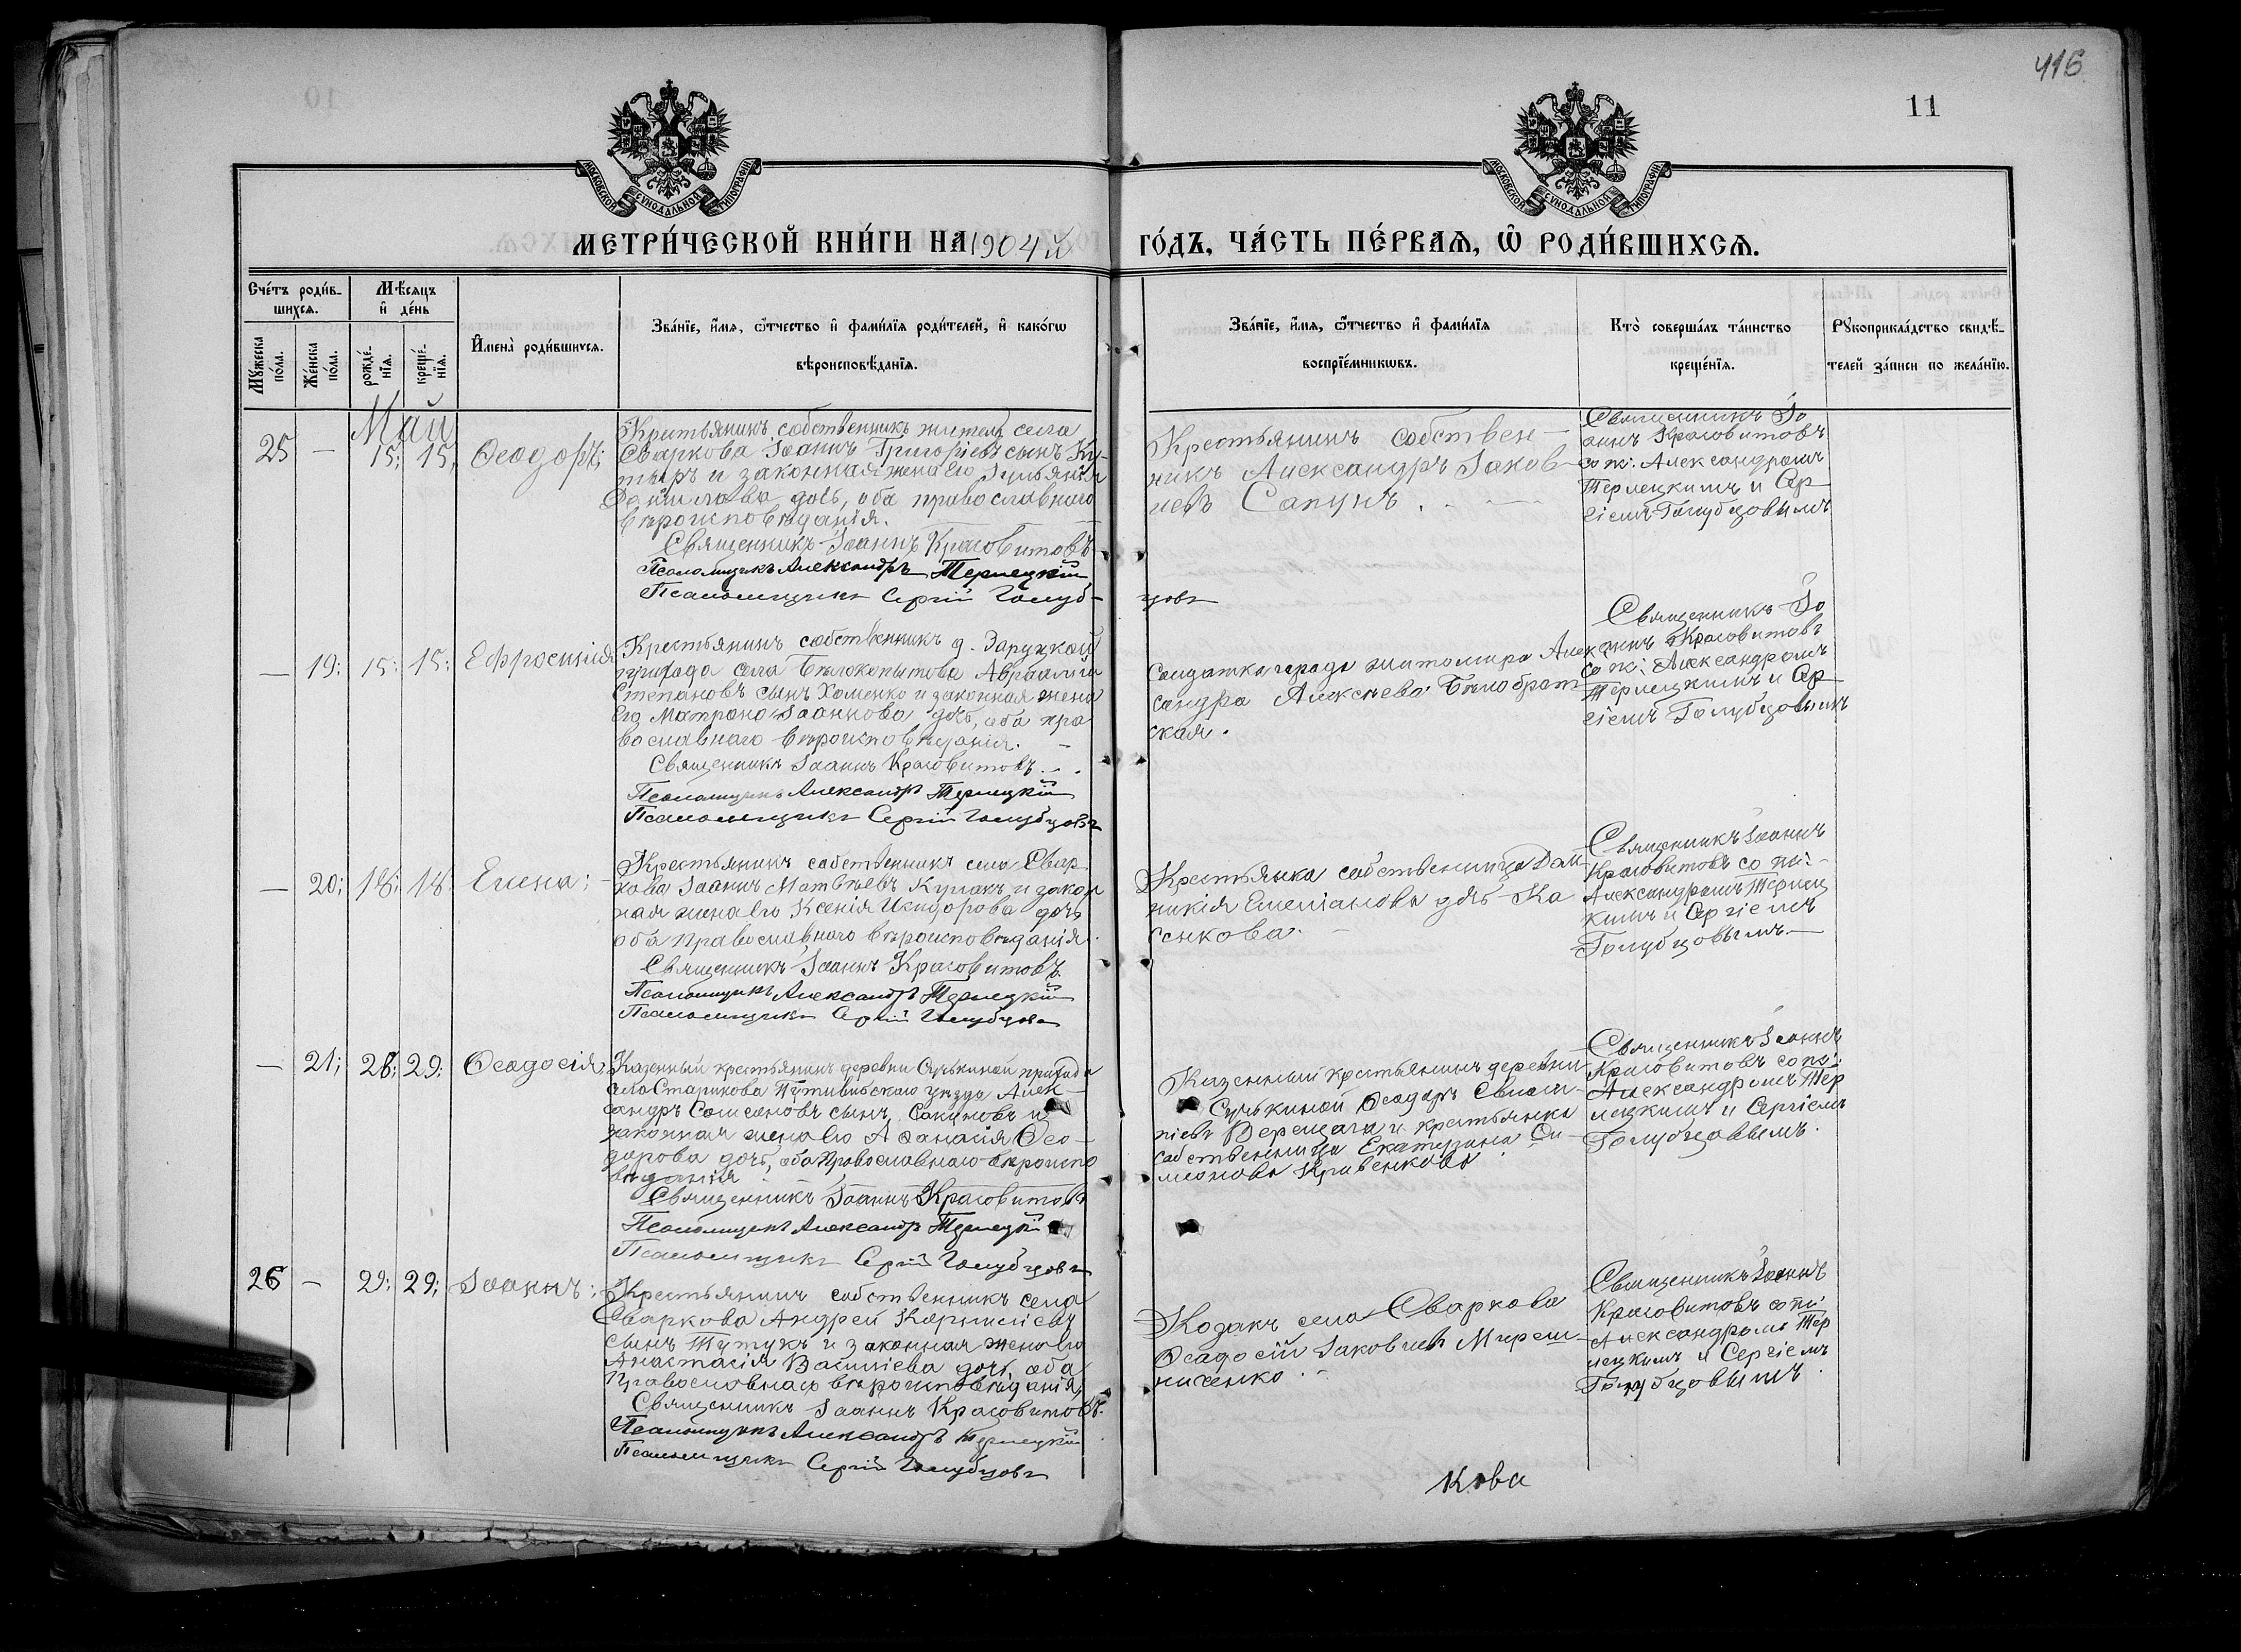 416
11
МОСКОВСКОЙ СѴНОДАЛЬНОЙ ТИПОГРАФІИ
МОСКОВСКОЙ СѴНОДАЛЬНОЙ ТИПОГРАФІИ
МЕТРИ́ЧЕСКОЙ КНИ́ГИ НА 1904 й ГО́ДЪ, ЧА́СТЬ ПЕ́РВАѦ, Ѡ҆ РОДИ́ВШИХСѦ.
Сче́тъ роди́в-
шихсѧ.
Мѣ́сѧцъ
и҆ де́нь
Мꙋ́жеска по́ла.
Же́нска по́ла.
рожде́-нїѧ.
креще́-нїѧ.
И҆мена̀ роди́вшихсѧ.
Зва́нїе, и҆́мѧ, ѻ҆́тчество и҆ фами́лїѧ роди́телей, и҆ како́гѡ
вѣроисповѣ́данїѧ.
Зва́нїе, и҆́мѧ, ѻ҆́тчество и҆ фами́лїѧ
воспрїе́мникѡвъ.
Кто̀ соверша́лъ та́инство
креще́нїѧ.
Рꙋкоприкла́дство свидѣ́-
телей за́писи по жела́нїю.
Май
25 — 15; 15; Ѳеодоръ;
Крестьянинъ собственникъ житель села
Сваркова Іоаннъ Григоріевъ сынъ Ку-
тыръ и законная жена его Іульянія
Даниилова дочь, оба православнаго
вѣроисповѣданія.
Священникъ Іоаннъ Красовитовъ
Псаломщикъ Александръ Терлецкій
Псаломщикъ Сергій Голуб-
цовъ
Крестьянинъ собствен-
никъ Александръ Іаков-
левъ Сапунъ.
Священникъ Іо
аннъ Красовитовъ
со пс: Александромъ
Терлецкимъ и Сер
гіемъ Голубцовымъ
— 19; 15; 15; Ефросинія
Крестьянинъ собственникъ д. Заруцкой
прихода села Бѣлокопытова Авраамій
Степановъ сынъ Хоменко и законная жена
его Матрона Іоаннова дочь, оба пра
вославнаго вѣроисповѣданія.
Священникъ Іоаннъ Красовитовъ
Псаломщикъ Александръ Терлецкій
Псаломщикъ Сергій Голубцовъ
Солдатка города Житомира Алек
сандра Алексѣева Бѣлобрат
ская.
Священникъ Іо
аннъ Красовитовъ
со пс: Александромъ
Терлецкимъ и Сер
гіемъ Голубцовымъ
— 20; 18; 18; Елена;
Крестьянинъ собственникъ села Свар
кова Іоаннъ Матвѣевъ Кулакъ и закон
ная жена его Ксенія Исидорова дочь
оба православнаго вѣроисповѣданія.
Священникъ Іоаннъ Красовитовъ
Псаломщикъ Александръ Терлецкій
Псаломщикъ Сергій Голубцовъ
Крестьянка собственница Дом
никія Емеліанова дочь Ка
сенкова.
Священникъ Іоаннъ
Красовитовъ со пс:
Александромъ Терлец
кимъ и Сергіемъ
Голубцовымъ
— 21; 28; 29; Ѳеодосія
Казенный крестьянинъ деревни Сутькиной прихода
села Старикова Путивльскаго уѣзда Алек-
сандръ Самсоновъ сынъ Сакуновъ и
законная жена его Аѳанасія Ѳео-
дорова дочь, оба православнаго вѣроиспо
вѣданія
Священникъ Іоаннъ Красовитовъ
Псаломщикъ Александръ Терлецкій
Псаломщикъ Сергій Голубцовъ
Казенный крестьянинъ деревни
Сутькиной Ѳеодоръ
Верещага и крестьянка
собственница Екатерина Си-
меонова Кривенкова
Священникъ Іоаннъ
Красовитовъ со пс:
Александромъ Тер
лецкимъ и Сергіемъ
Голубцовымъ.
26 — 29; 29; Іоаннъ;
Крестьянинъ собственникъ села
Сваркова Андрей Корниліевъ
сынъ Тутукъ и законная жена его
Анастасія Василіева дочь, оба
православнаго вѣроисповѣданія,
Священникъ Іоаннъ Красовитовъ.
Псаломщикъ Александръ Терлецкій
Псаломщикъ Сергій Голубцовъ
Козакъ села Сваркова
Ѳеодосій Іаковлевъ Мирош-
ниченко.
Священникъ Іоаннъ
Красовитовъ со пс:
Александромъ Тер
лецкимъ и Сергіемъ
Голубцовымъ.
кова